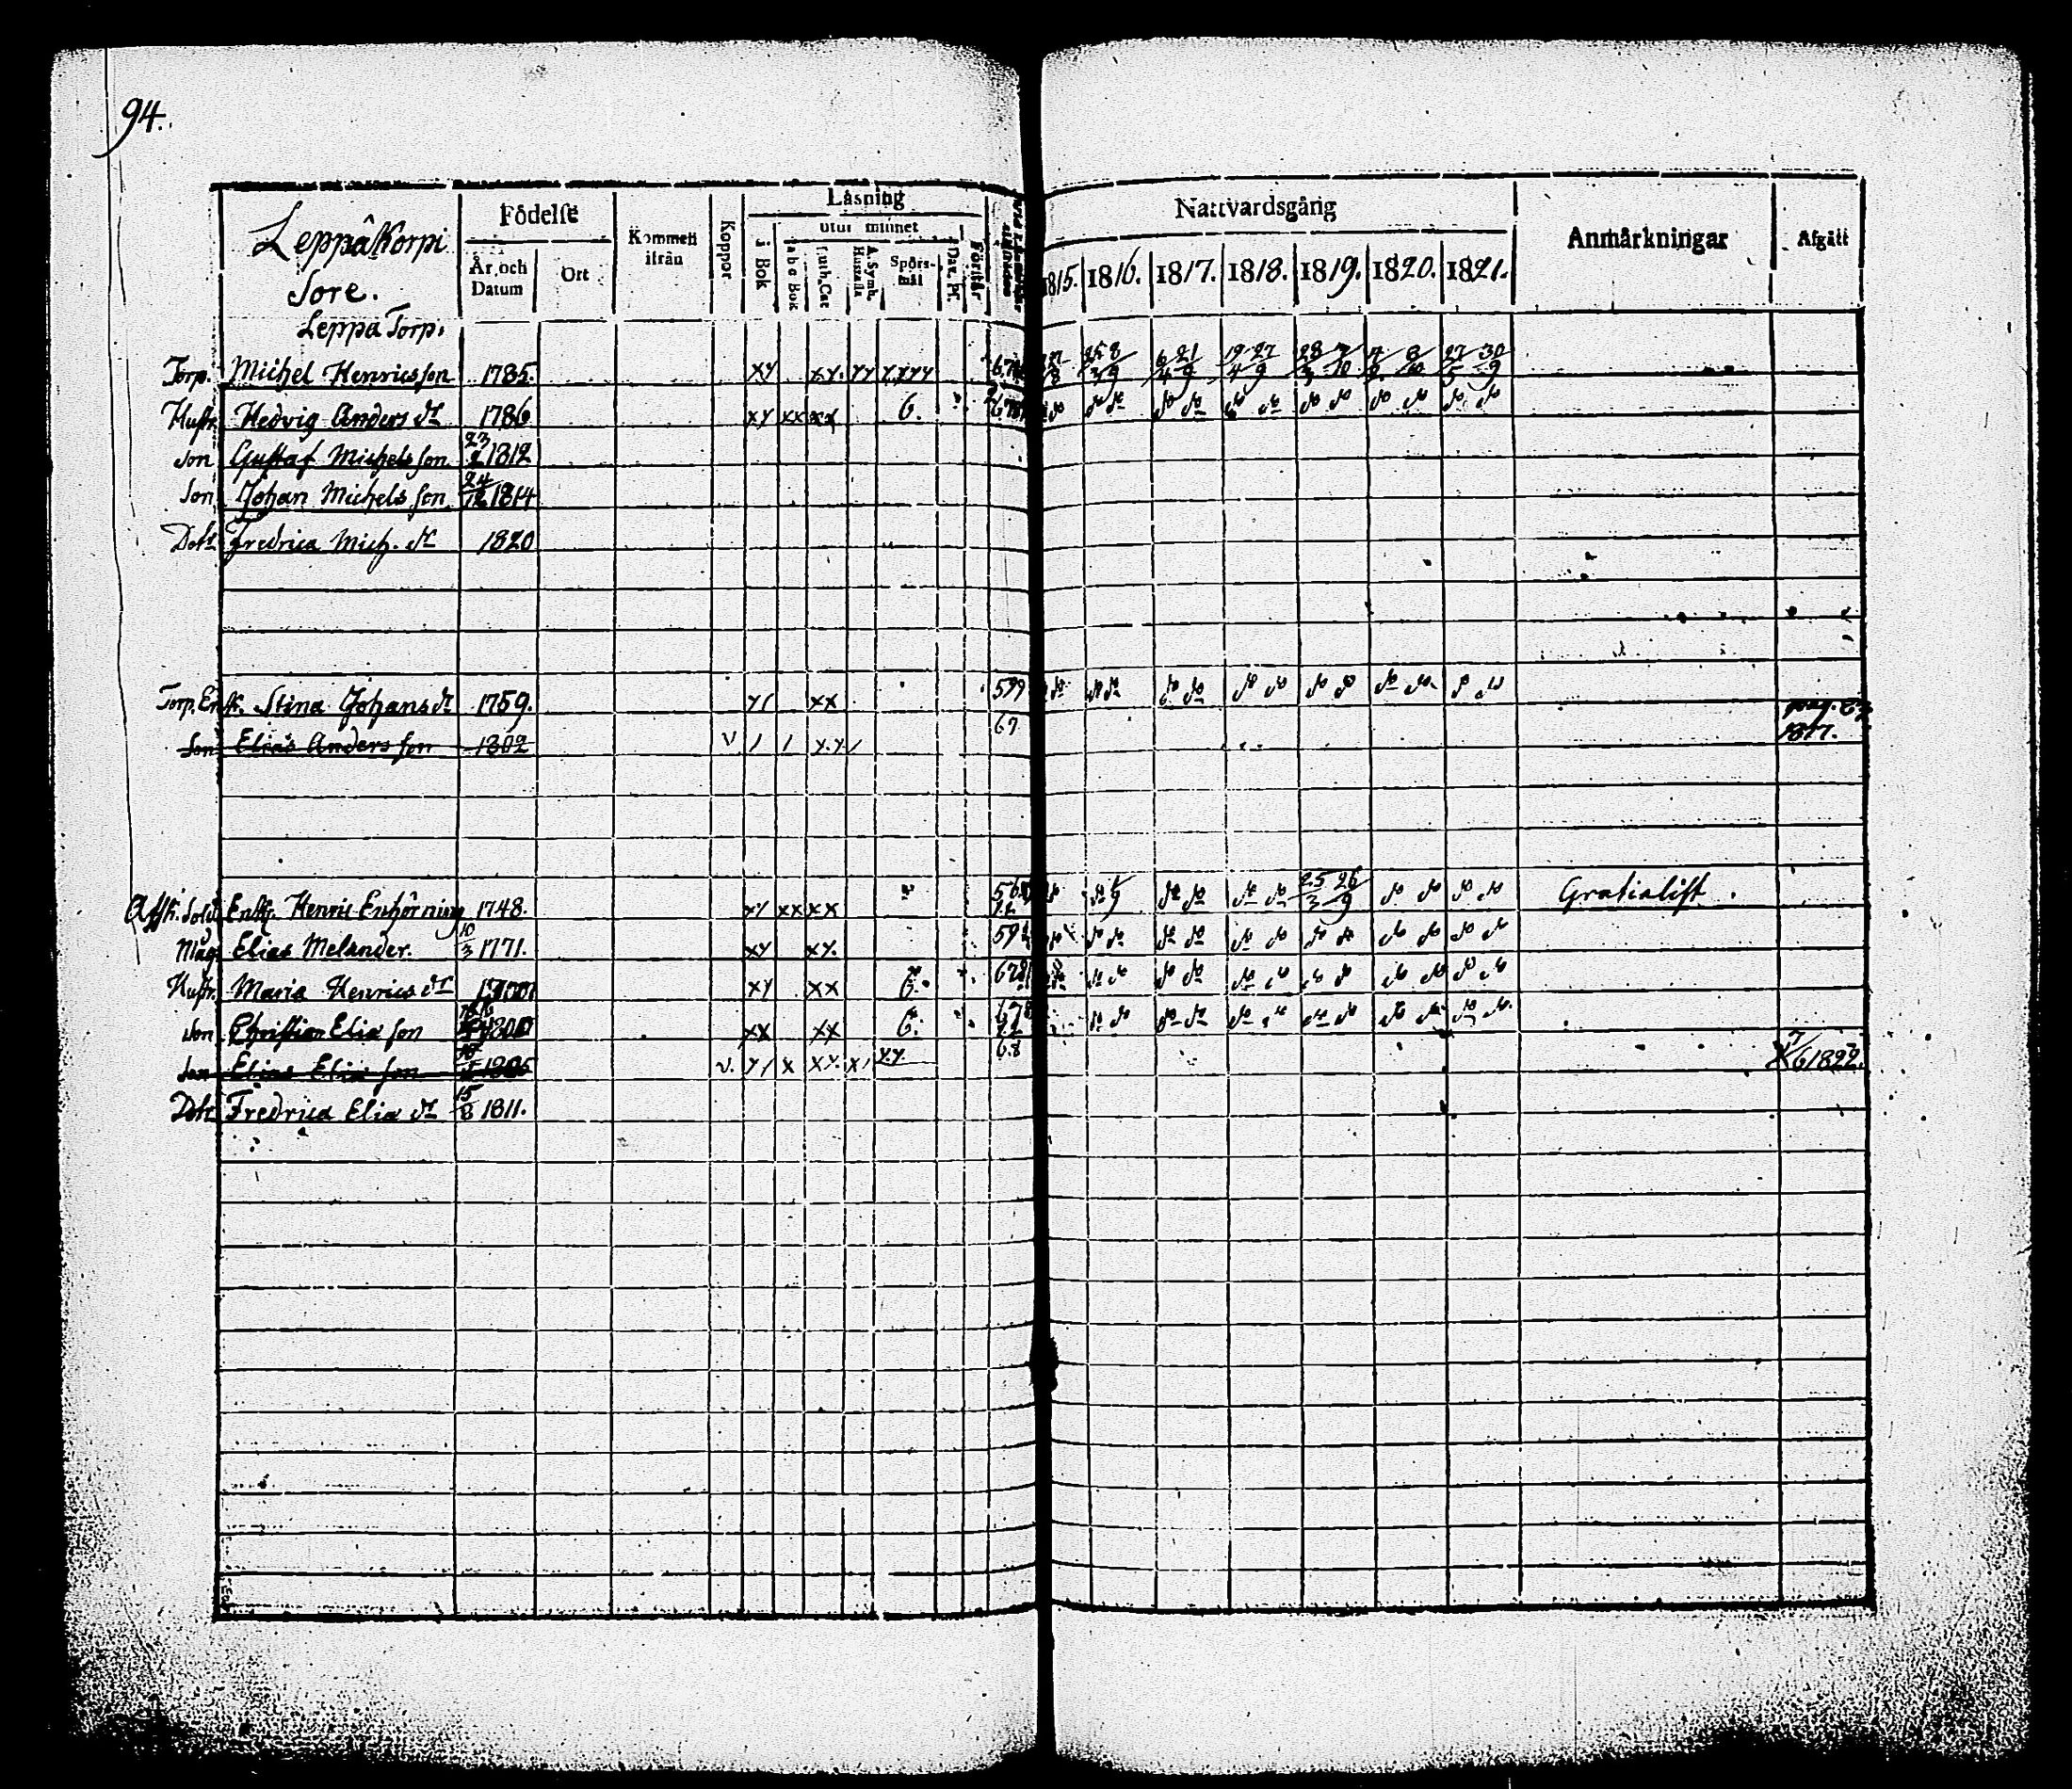 94.
Leppâkorpi
Sore.
Leppa Torp.
Födelse
År och Datum
Ort
Kommen ifrån
Koppor
Läsning
utur minnet
i Bok
a b c Bok
Luth. Cat
A. Symb. Hustafla
Spörs-mål
Dav. Ps.
Förstår
Nattvardsgång
1815. 1816. 1817. 1818. 1819. 1820. 1821.
Anmärkningar
Afgått
Torp. Michel Henricsson 1785. xy x.y. yy y.yyy 25 8 / 3 9 6 21 / 4 9 19 27 / 4 9
Hustr. Hedvig Anders dr 1786 xy xx xx 6. do do do do do do do do do do do do
Son Gustaf Michelsson 23/2 1812
Son Johan Michelsson 24/12 1814
Dotr Fredrica Mich. dr 1820
Torp. Enk. Stina Johans dr 1759. y/ xx 599 do do do do do do do do do do do do
Son Elias Andersson 1802 v / / y.y/ 67 1817.
Afsk. Sold. Enk. Henric Enhörning 1748. xy xx xx do 9 do do do do 25 26 / 3 9 do do do do Gratialist.
Måg Elias Melander. 10/3 1771. xy xy. do do do do do do do do do do do do
Hustr. Maria Henrics dr xy xx 6. do do do do do do do do do do do do
Son Christian Elia son xx xx 6. do do do do do do do do do do do do
Son Elias Elia son 1805 v. y/ x xy. x/ y.y. 68 6 1822.
Dotr Fredrica Elia dr 15/8 1811.